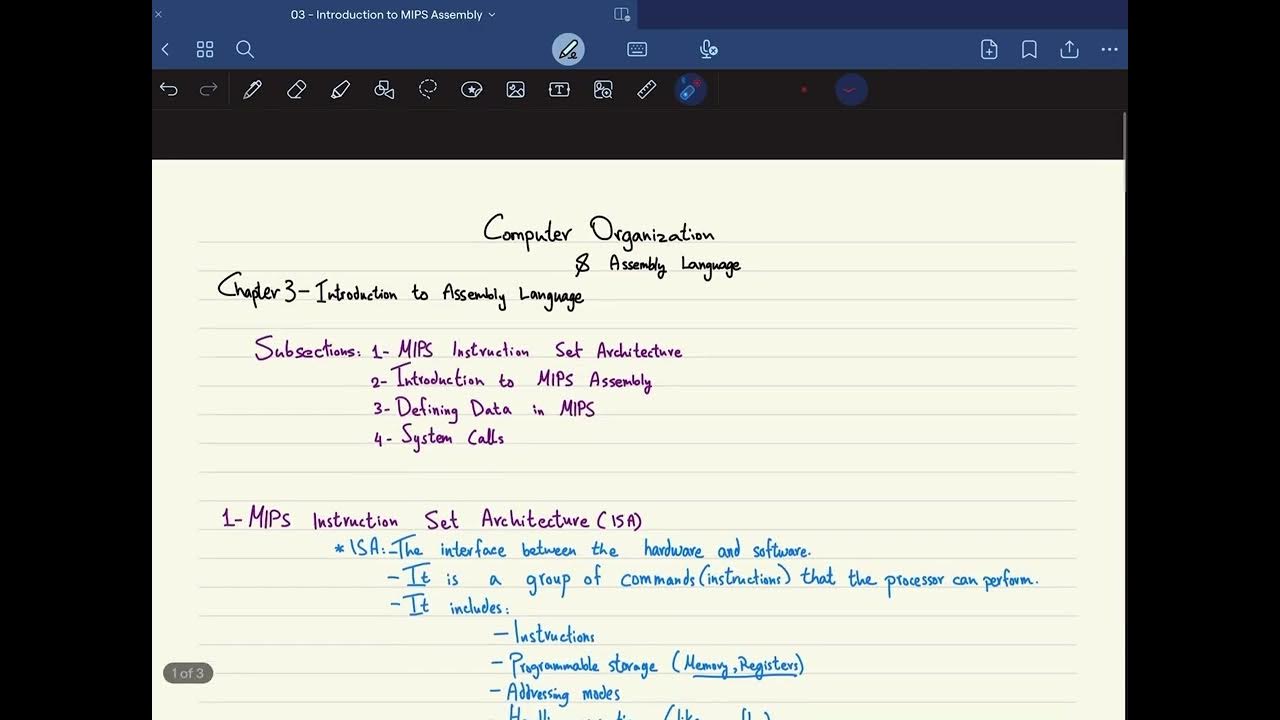 03 - Introduction to MIPS Assembly
Computer Organization
& Assembly Language
Chapter 3 - Introduction to Assembly Language
Subsections: 1- MIPS Instruction Set Architecture
2- Introduction to MIPS Assembly
3- Defining Data in MIPS
4- System Calls
1- MIPS Instruction Set Architecture (ISA)
* ISA: - The interface between the hardware and software.
- It is a group of commands (instructions) that the processor can perform.
- It includes:
- Instructions
- Programmable storage (Memory, Registers)
1 of 3
- Addressing modes